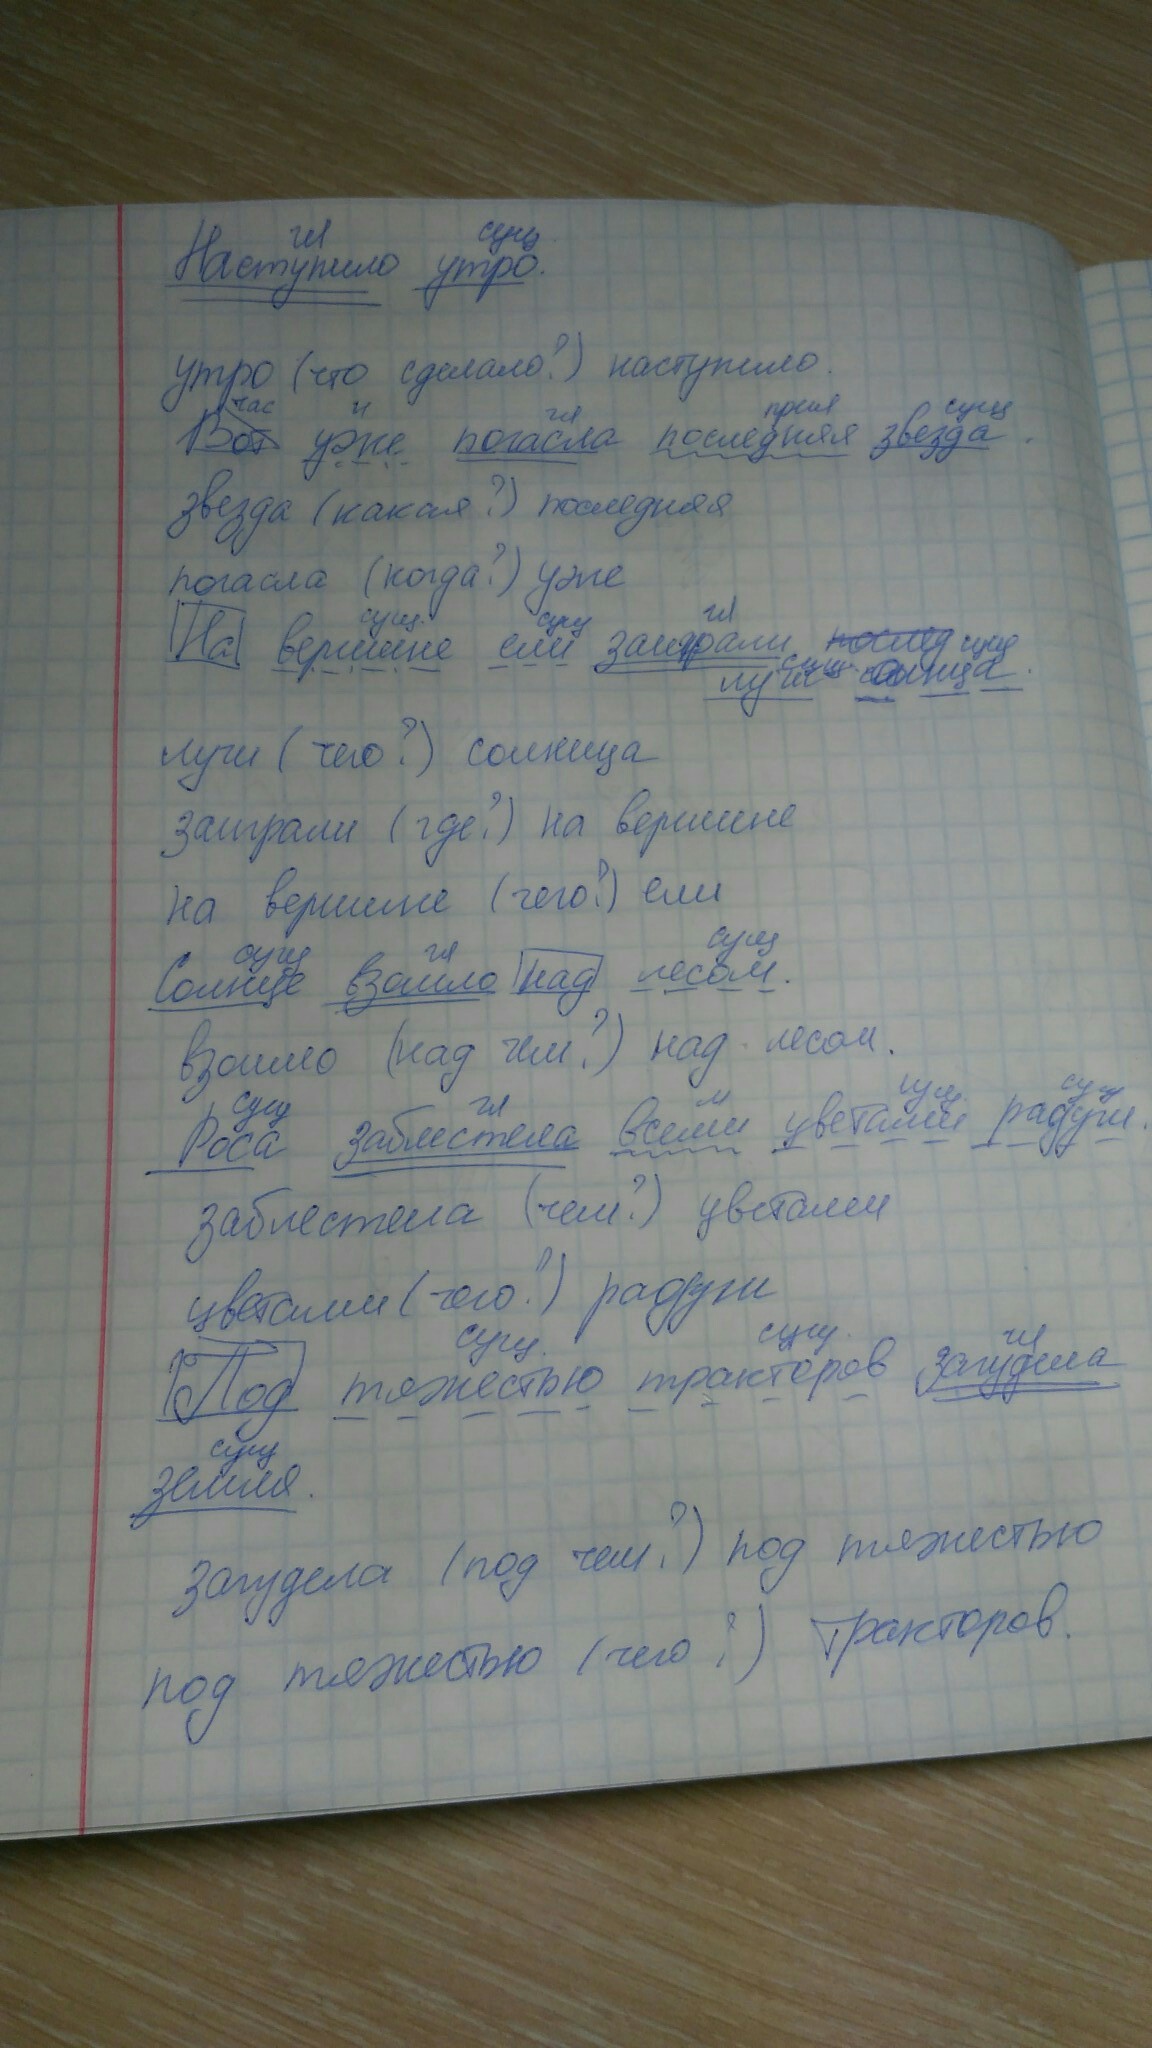 гл сущ.
Наступило утро.
утро (что сделало?) наступило.
час н гл прил сущ
Вот уже погасла последняя звезда.
звезда (какая?) последняя
погасла (когда?) уже
сущ. сущ гл
На вершине ели заиграли послед сущ
сущ.
лучи солнца.
лучи (чего?) солнца
заиграли (где?) на вершине
на вершине (чего?) ели
сущ гл сущ
Солнце взошло над лесом.
взошло (над чем?) над лесом.
сущ гл м сущ. сущ
Роса заблестела всеми цветами радуги.
заблестела (чем?) цветами
цветами (чего?) радуги
сущ. сущ. гл
Под тяжестью тракторов загудела
сущ
земля.
загудела (под чем?) под тяжестью
под тяжестью (чего?) тракторов.